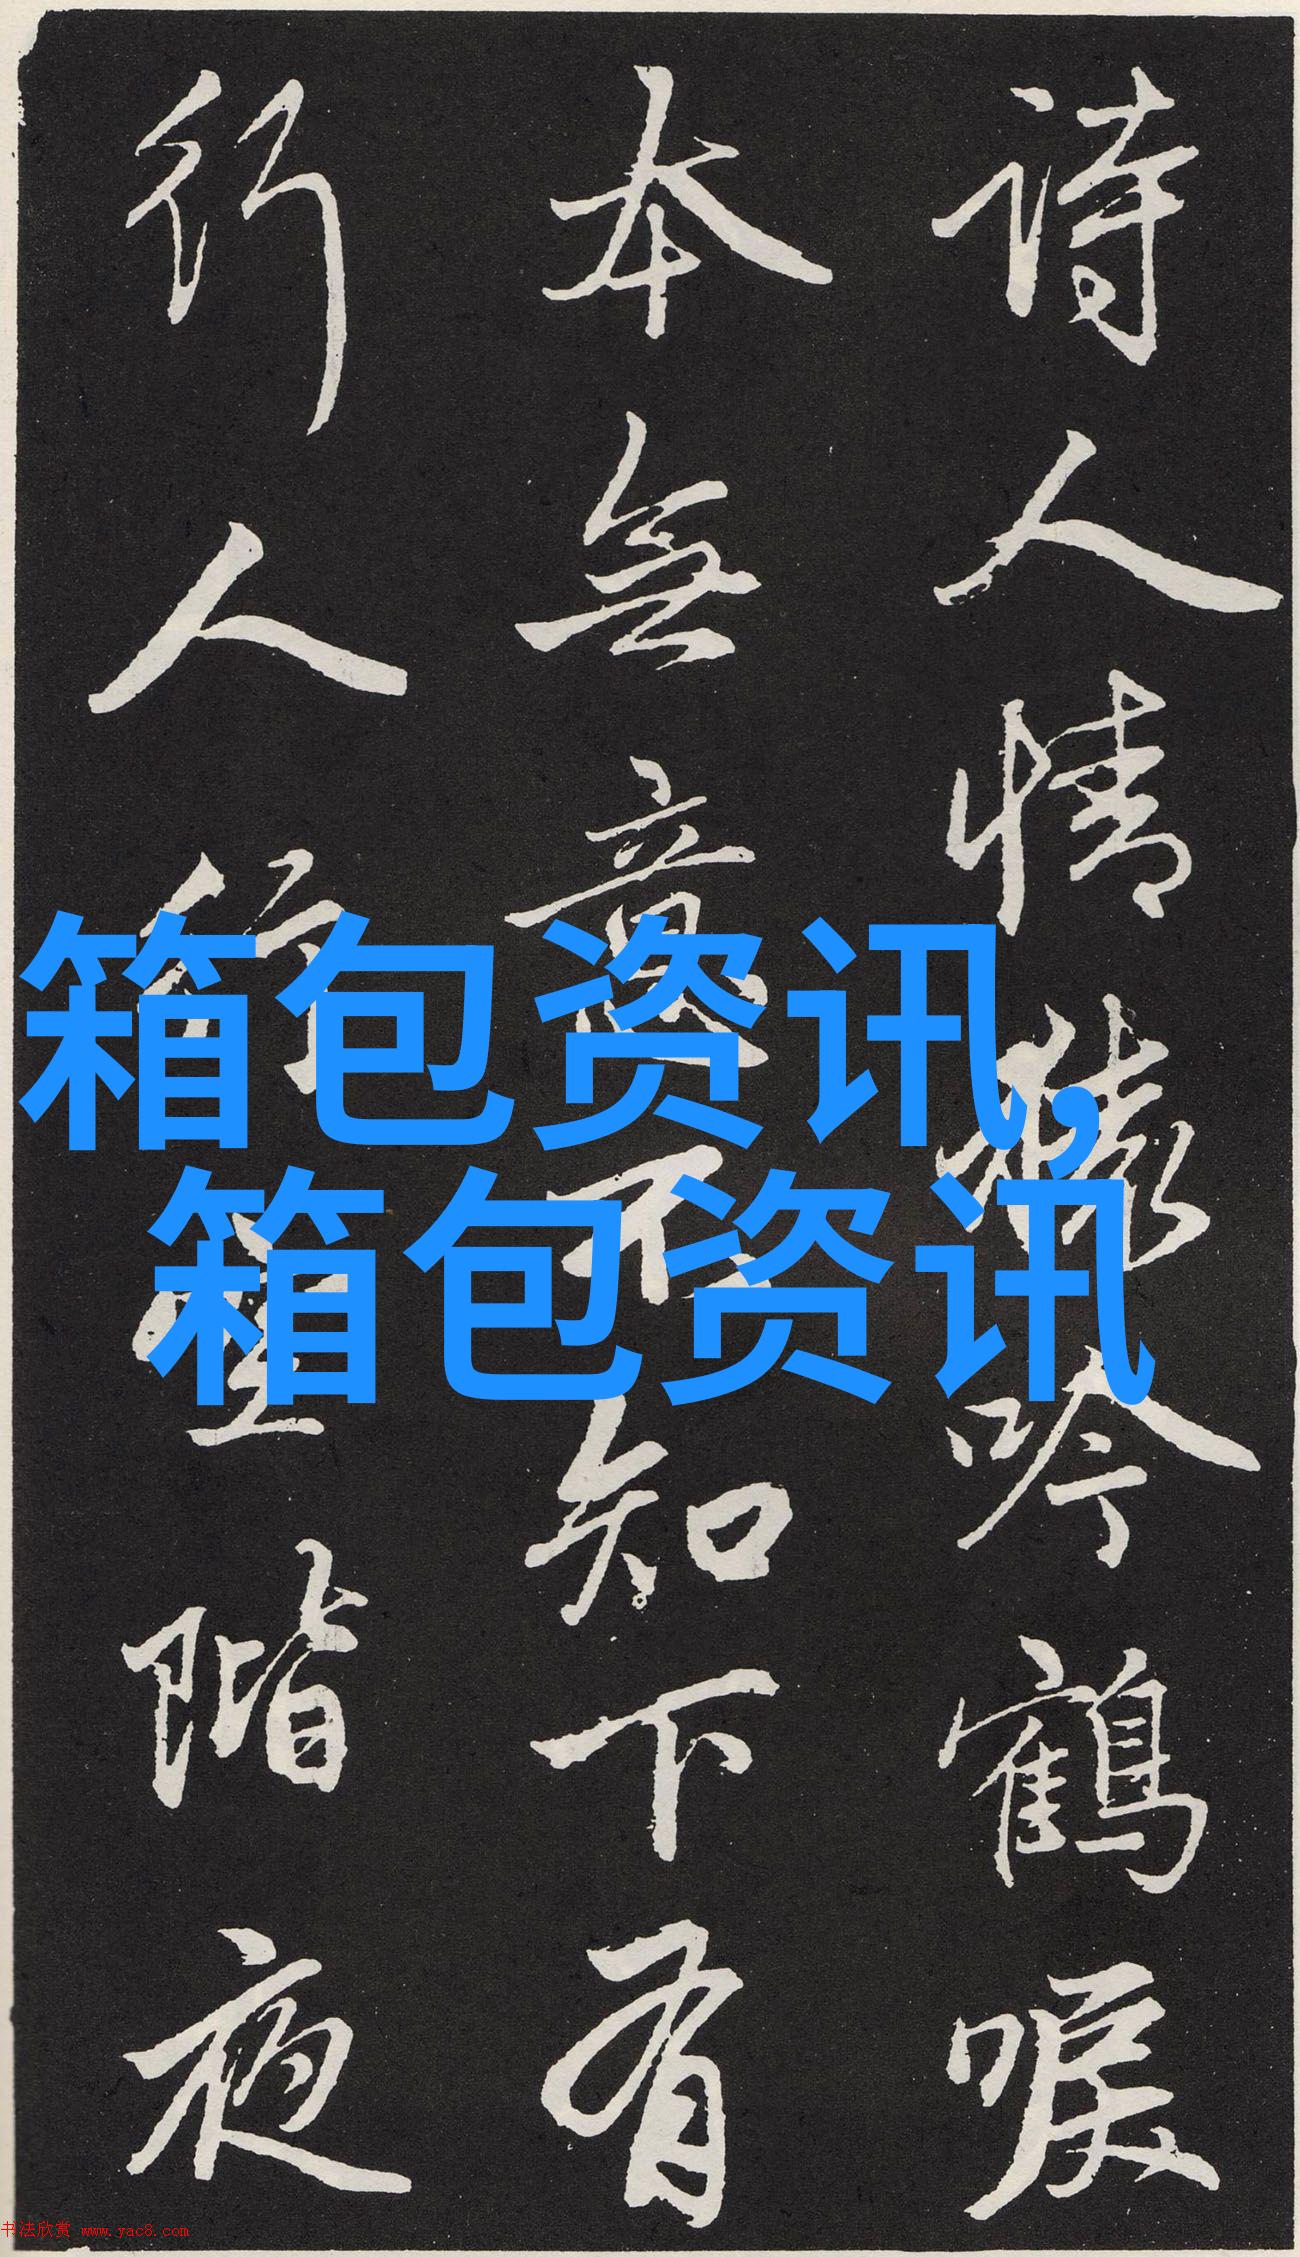 詩人情猿吟鶴唳
本無意不知下有
行人行空階夜
箱包资讯,
箱包资讯
书法欣赏 www.yac8.com